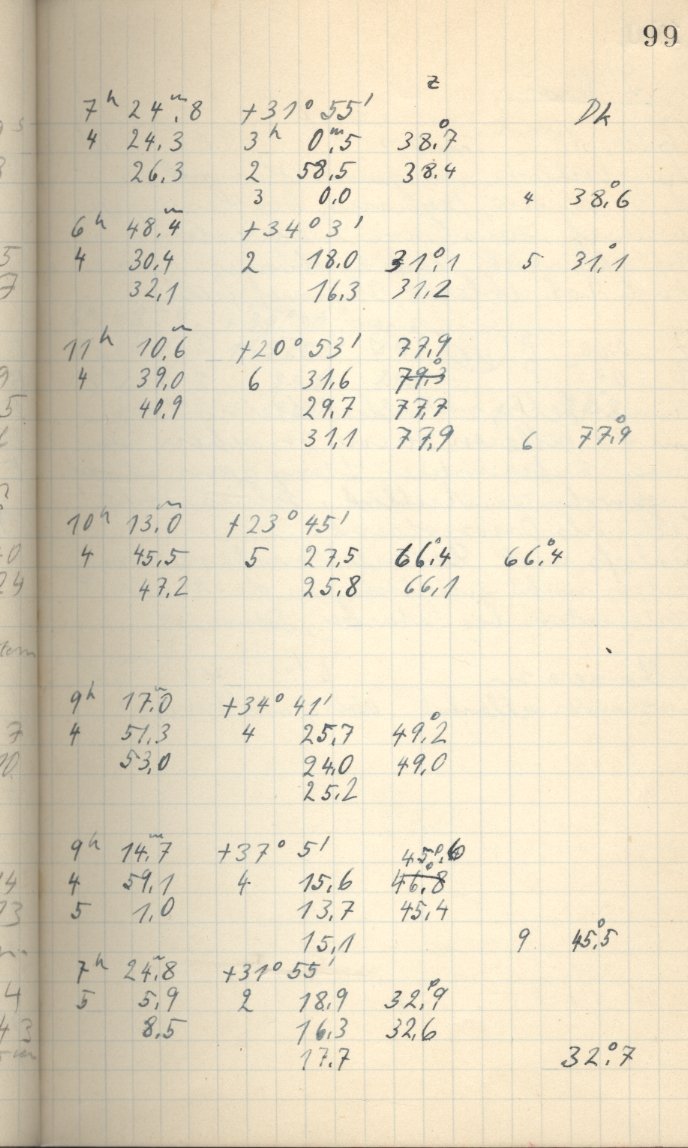 99
z
7ʰ 24ᵐ.8 +31° 55' Dk
4 24.3 3ʰ 0ᵐ.5 38°.7
26.3 2 58.5 38.4
3 0.0 4 38°.6
6ʰ 48ᵐ.4 +34° 3'
4 30.4 2 18.0 31°.1 5 31°.1
32.1 16.3 31.2
11ʰ 10ᵐ.6 +20° 53' 77.9
4 39.0 6 31.6 79°.3
40.9 29.7 77.7
31.1 77.9 6 77°.9
10ʰ 13ᵐ.0 +23° 45'
4 45.5 5 27.5 66°.4 66°.4
47.2 25.8 66.1
9ʰ 17ᵐ.0 +34° 41'
4 51.3 4 25.7 49°.2
53.0 24.0 49.0
25.2
9ʰ 14ᵐ.7 +37° 5' 45°.6
4 59.1 4 15.6 46°.8
5 1.0 13.7 45.4
15.1 9 45°.5
7ʰ 24ᵐ.8 +31° 55'
5 5.9 2 18.9 32°.9
8.5 16.3 32.6
17.7 32°.7